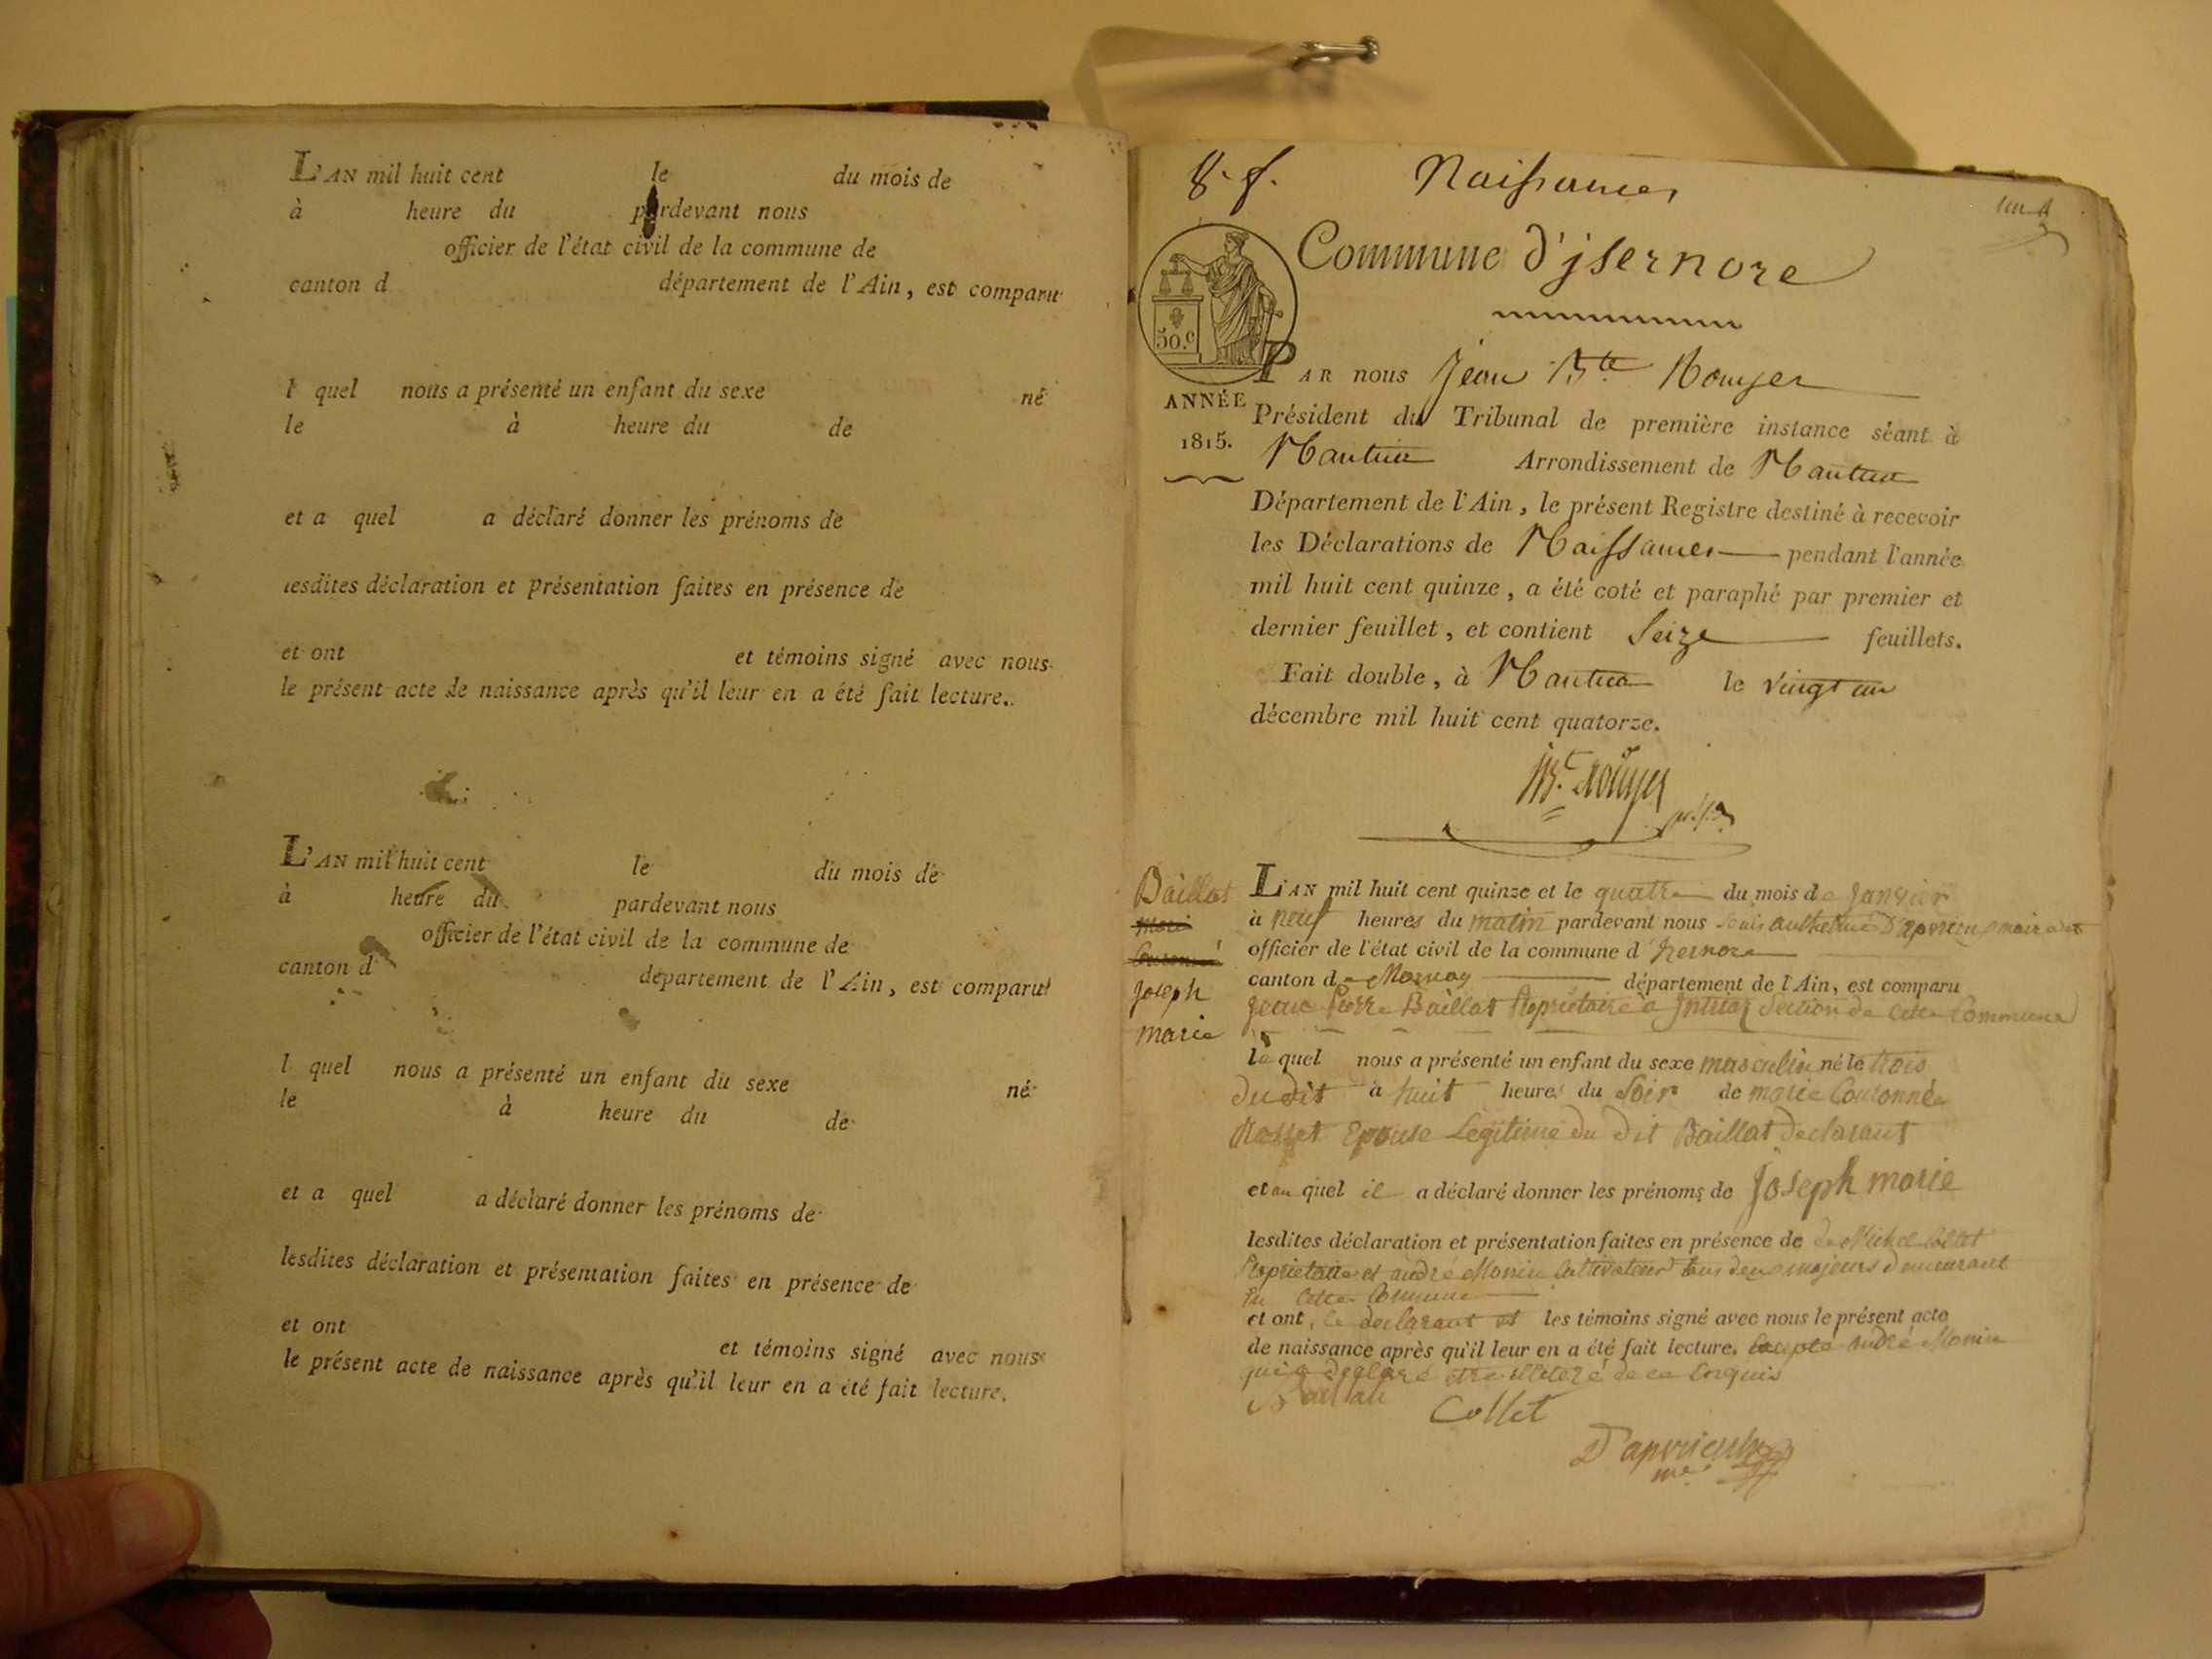 L'AN mil huit cent le du mois de
à heure du pardevant nous
officier de l'état civil de la commune de
canton d département de l'Ain, est comparu
l quel nous a présenté un enfant du sexe né
le à heure du de
et a quel a déclaré donner les prénoms de
lesdites déclaration et présentation faites en présence de
et ont et témoins signé avec nous
le présent acte de naissance après qu'il leur en a été fait lecture.
L'AN mil huit cent le du mois de
à heure du pardevant nous
officier de l'état civil de la commune de
canton d département de l'Ain, est comparu
l quel nous a présenté un enfant du sexe né
le à heure du de
et a quel a déclaré donner les prénoms de
lesdites déclaration et présentation faites en présence de
et ont et témoins signé avec nous
le présent acte de naissance après qu'il leur en a été fait lecture.
8. f. Naissances
Commune d'jsernore
50.c
PAR nous Jean Bte Rouyer
ANNÉE
1815.
Président du Tribunal de première instance séant à
Nantua Arrondissement de Nantua
Département de l'Ain, le présent Registre destiné à recevoir
les Déclarations de Naissances pendant l'année
mil huit cent quinze, a été coté et paraphé par premier et
dernier feuillet, et contient Seize feuillets.
Fait double, à Nantua le vingt un
décembre mil huit cent quatorze.
Baillat
Joseph
marie
L'AN mil huit cent quinze et le quatre du mois de Janvier
à neuf heures du matin pardevant nous Louis D'apvrieulx maire et
officier de l'état civil de la commune d'Izernore
canton de Mornay département de l'Ain, est comparu
Jean Pierre Baillat Propriétaire à Intriaz Section de cette Commune
le quel nous a présenté un enfant du sexe masculin né le trois
du dit à huit heures du Soir de marie Couronnée
Rosset Epouse Légitime du dit Baillat declarant
et au quel il a déclaré donner les prénoms de Joseph marie
lesdites déclaration et présentation faites en présence de de Michel Collet
Propriétaire et andré Monin Cultivateur tous deux majeurs demeurant
En Cette Commune
et ont, le declarant et les témoins signé avec nous le présent acte
de naissance après qu'il leur en a été fait lecture. Excepté André Monin
qui a declaré etre illiteré de ce Enquis
Baillat
Collet
D'apvrieulx
me